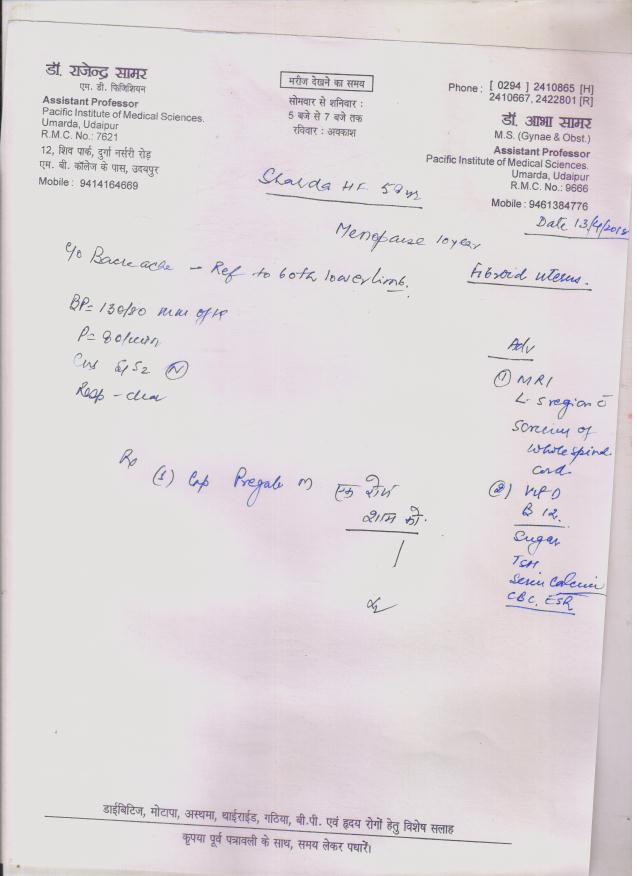 डॉ. राजेन्द्र सामर
एम. डी. फिजिशियन
Assistant Professor
Pacific Institute of Medical Sciences.
Umarda, Udaipur
R.M.C. No.: 7621
12, शिव पार्क, दुर्गा नर्सरी रोड़
एम. बी. कॉलेज के पास, उदयपुर
Mobile : 9414164669
मरीज देखने का समय
सोमवार से शनिवार :
5 बजे से 7 बजे तक
रविवार : अवकाश
Phone : [ 0294 ] 2410865 [H]
2410667, 2422801 [R]
डॉ. आभा सामर
M.S. (Gynae & Obst.)
Assistant Professor
Pacific Institute of Medical Sciences.
Umarda, Udaipur
R.M.C. No.: 9666
Mobile : 9461384776
Date 13/4/2018
Sharda HF 59yr
Menopause 10 year
Fibroid uterus.
c/o Backache - Ref to both lower limb.
BP = 130/80 mm of
P = 80/min
S1 S2 N
Resp - clear
Rp
(1) Cap Pregable M एक रोज
शाम को.
Adv
(1) MRI
L-S region c̄
Screening of
whole spinal
cord
(2) Vit D
B 12.
Sugar
TSH
Serum Calcium
CBC, ESR
डाईबिटिज, मोटापा, अस्थमा, थाईराईड, गठिया, बी.पी. एवं हृदय रोगों हेतु विशेष सलाह
कृपया पूर्व पत्रावली के साथ, समय लेकर पधारें।